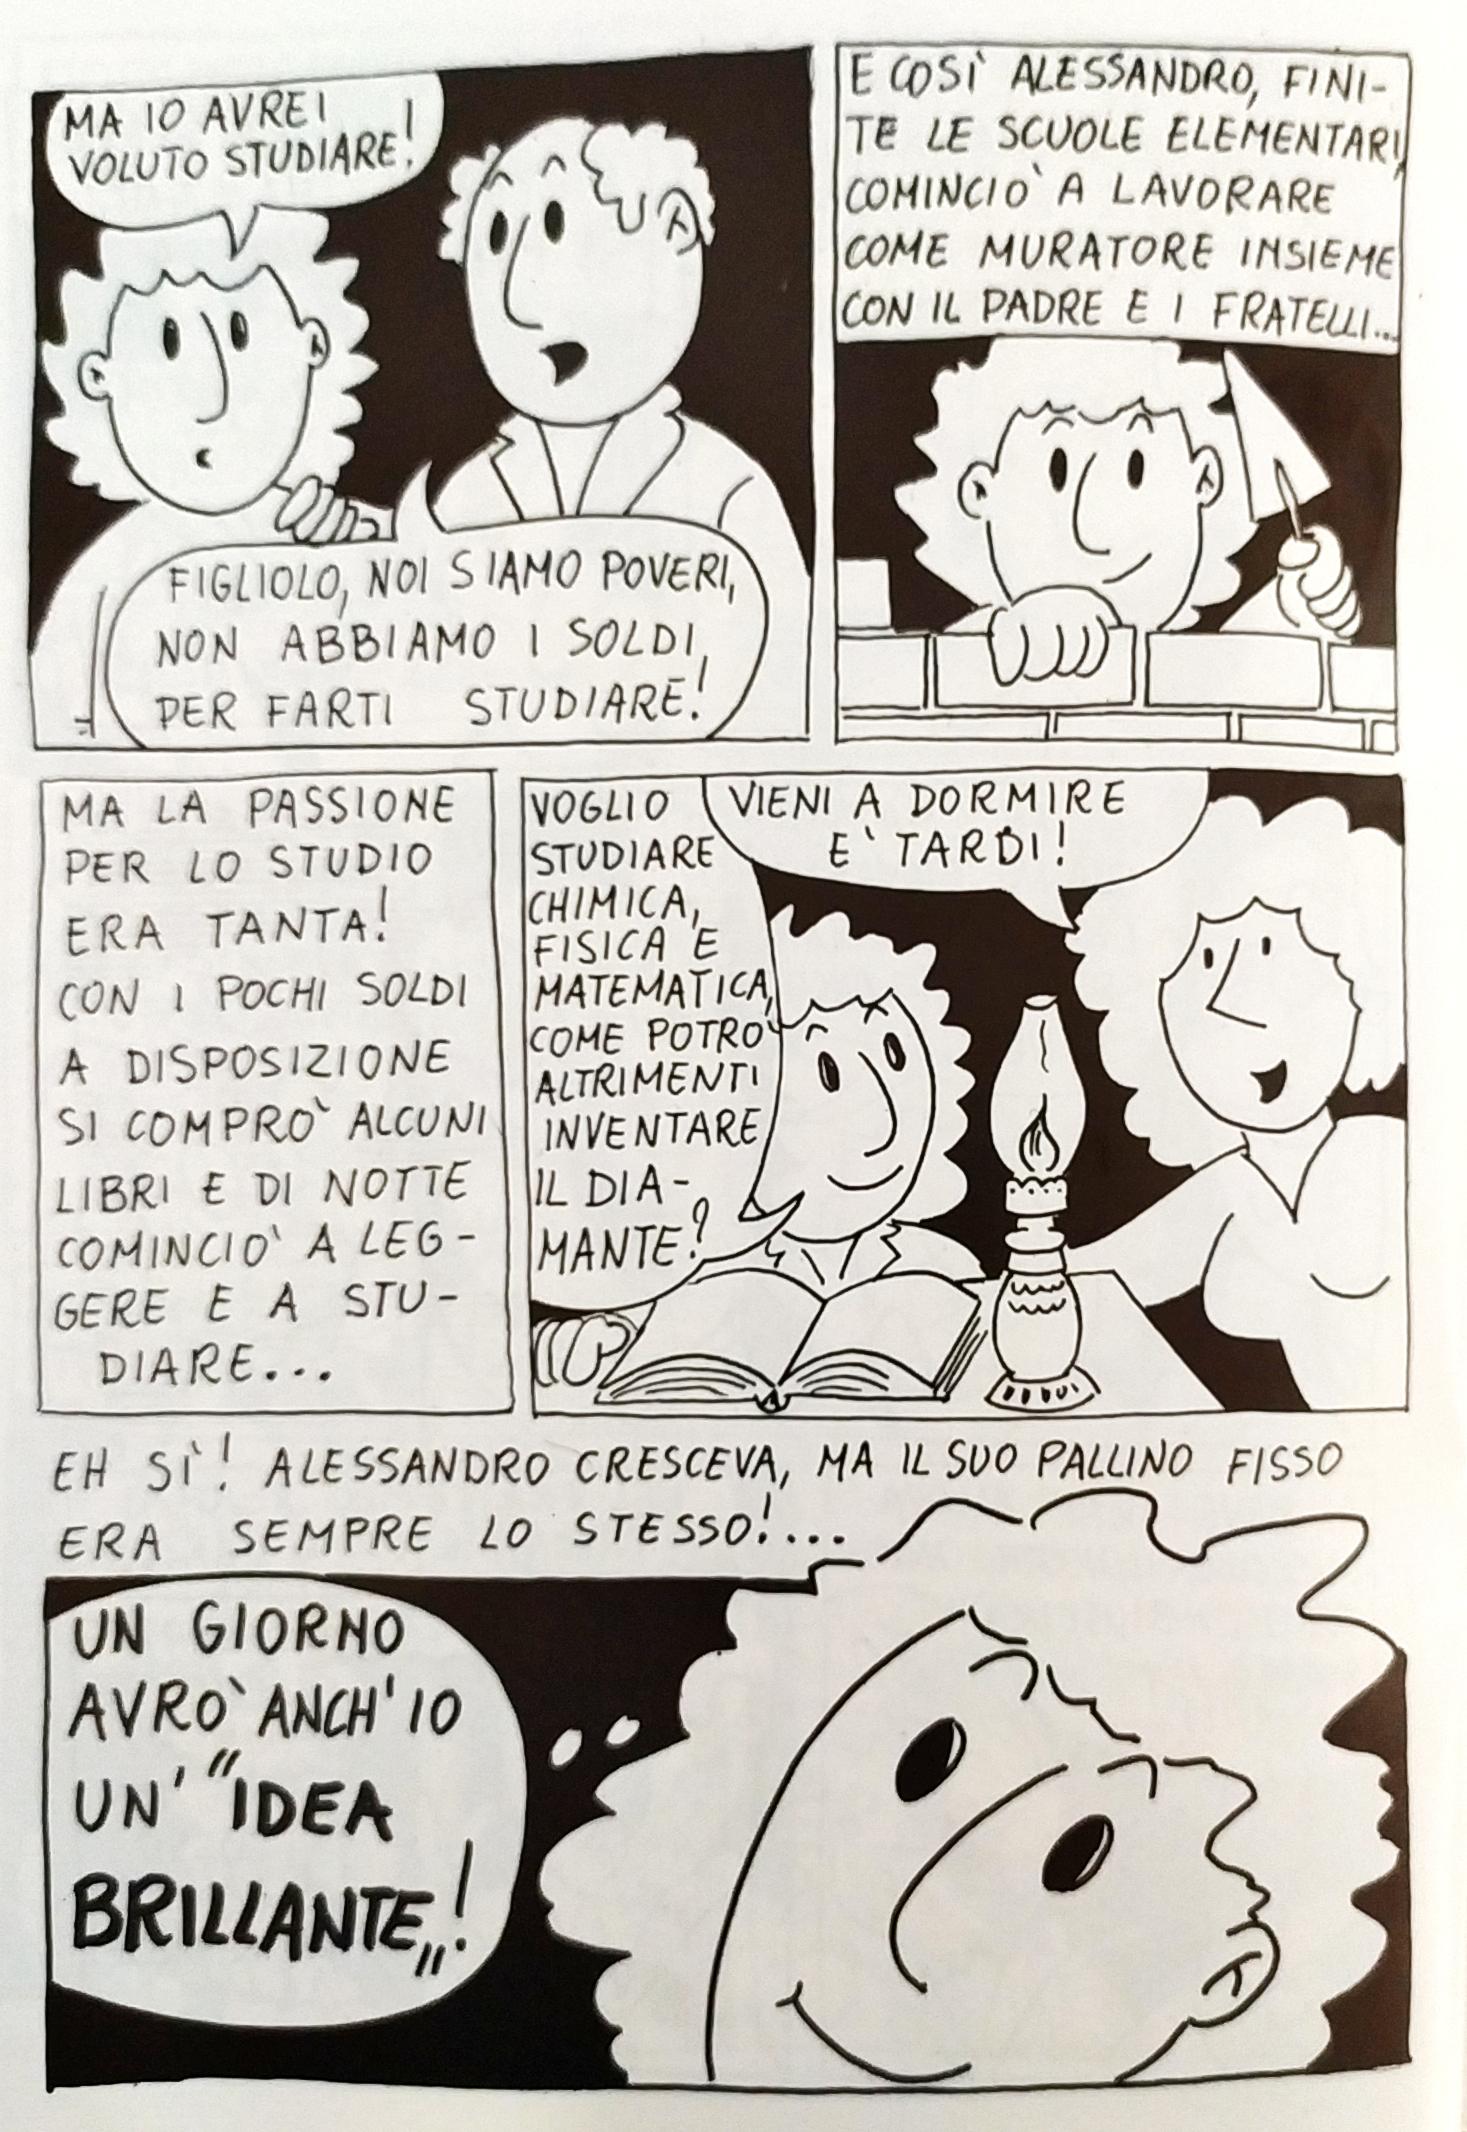 MA IO AVREI
VOLUTO STUDIARE!
FIGLIOLO, NOI SIAMO POVERI,
NON ABBIAMO I SOLDI,
PER FARTI STUDIARE!
E COSÌ ALESSANDRO, FINI-
TE LE SCUOLE ELEMENTARI,
COMINCIO' A LAVORARE
COME MURATORE INSIEME
CON IL PADRE E I FRATELLI...
MA LA PASSIONE
PER LO STUDIO
ERA TANTA!
CON I POCHI SOLDI
A DISPOSIZIONE
SI COMPRO' ALCUNI
LIBRI E DI NOTTE
COMINCIO' A LEG-
GERE E A STU-
DIARE...
VOGLIO
STUDIARE
CHIMICA,
FISICA E
MATEMATICA,
COME POTRO'
ALTRIMENTI
INVENTARE
IL DIA-
MANTE?
VIENI A DORMIRE
E' TARDI!
EH SÌ! ALESSANDRO CRESCEVA, MA IL SUO PALLINO FISSO
ERA SEMPRE LO STESSO!...
UN GIORNO
AVRO' ANCH'IO
UN' "IDEA
BRILLANTE„!